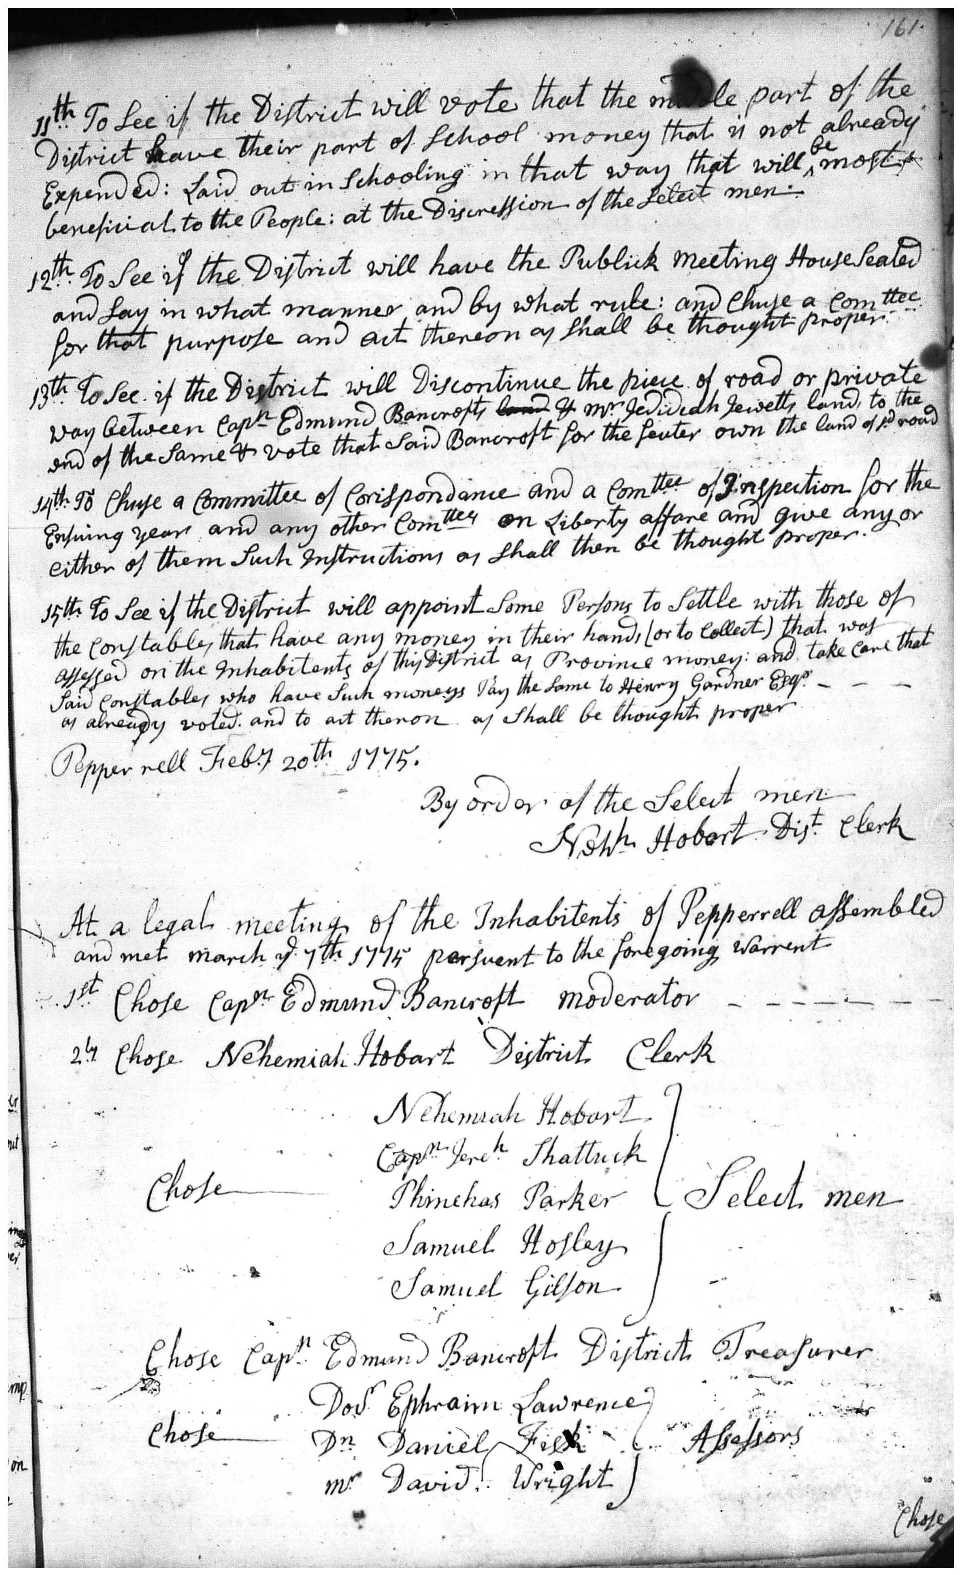 161.
11th To See if the District will vote that the middle part of the
District have their part of School money that is not already
Expended: Laid out in Schooling in that way that will be most
beneficial to the People: at the Discression of the Select men:
12th To See if the District will have the Publick meeting House Seated
and Say in what manner and by what rule: and Chuse a Comttee
for that purpose and act thereon as Shall be thought proper
13th To See if the District will Discontinue the piece of road or private
way between Capn Edmund Bancrofts land & mr Jedidiah Jewetts land to the
end of the Same & vote that Said Bancroft for the feuter own the land of sd road
14th To Chuse a Committee of Corispondance and a Comttee of Inspection for the
Ensuing year and any other Comttees on Liberty affare and give any or
either of them Such Instructions as Shall then be thought proper.
15th To See if the District will appoint Some Persons to Settle with those of
the Constables that have any money in their hands (or to Collect) that was
assessed on the Inhabitents of this District as Province money: and take Care that
Said Constables who have Such moneys Pay the Same to Henry Gardner Esqr
as already voted: and to act theron as Shall be thought proper
Pepperrell Feby 20th 1775.
By order of the Select men
Nehh Hobart Dist Clerk
At a legal meeting of the Inhabitents of Pepperrell assembled
and met march ye 7th 1775 persuent to the foregoing Warrent
1st Chose Capn Edmund Bancroft moderator
2ly Chose Nehemiah Hobart District Clerk
Nehemiah Hobart
Capn Jereh Shattuck
Chose Phinehas Parker Select men
Samuel Hosley
Samuel Gilson
Chose Capn Edmund Bancroft District Treasurer
Docr Ephraim Lawrence
Chose Dn Daniel Fisk Assessors
mr David Wright
Chose